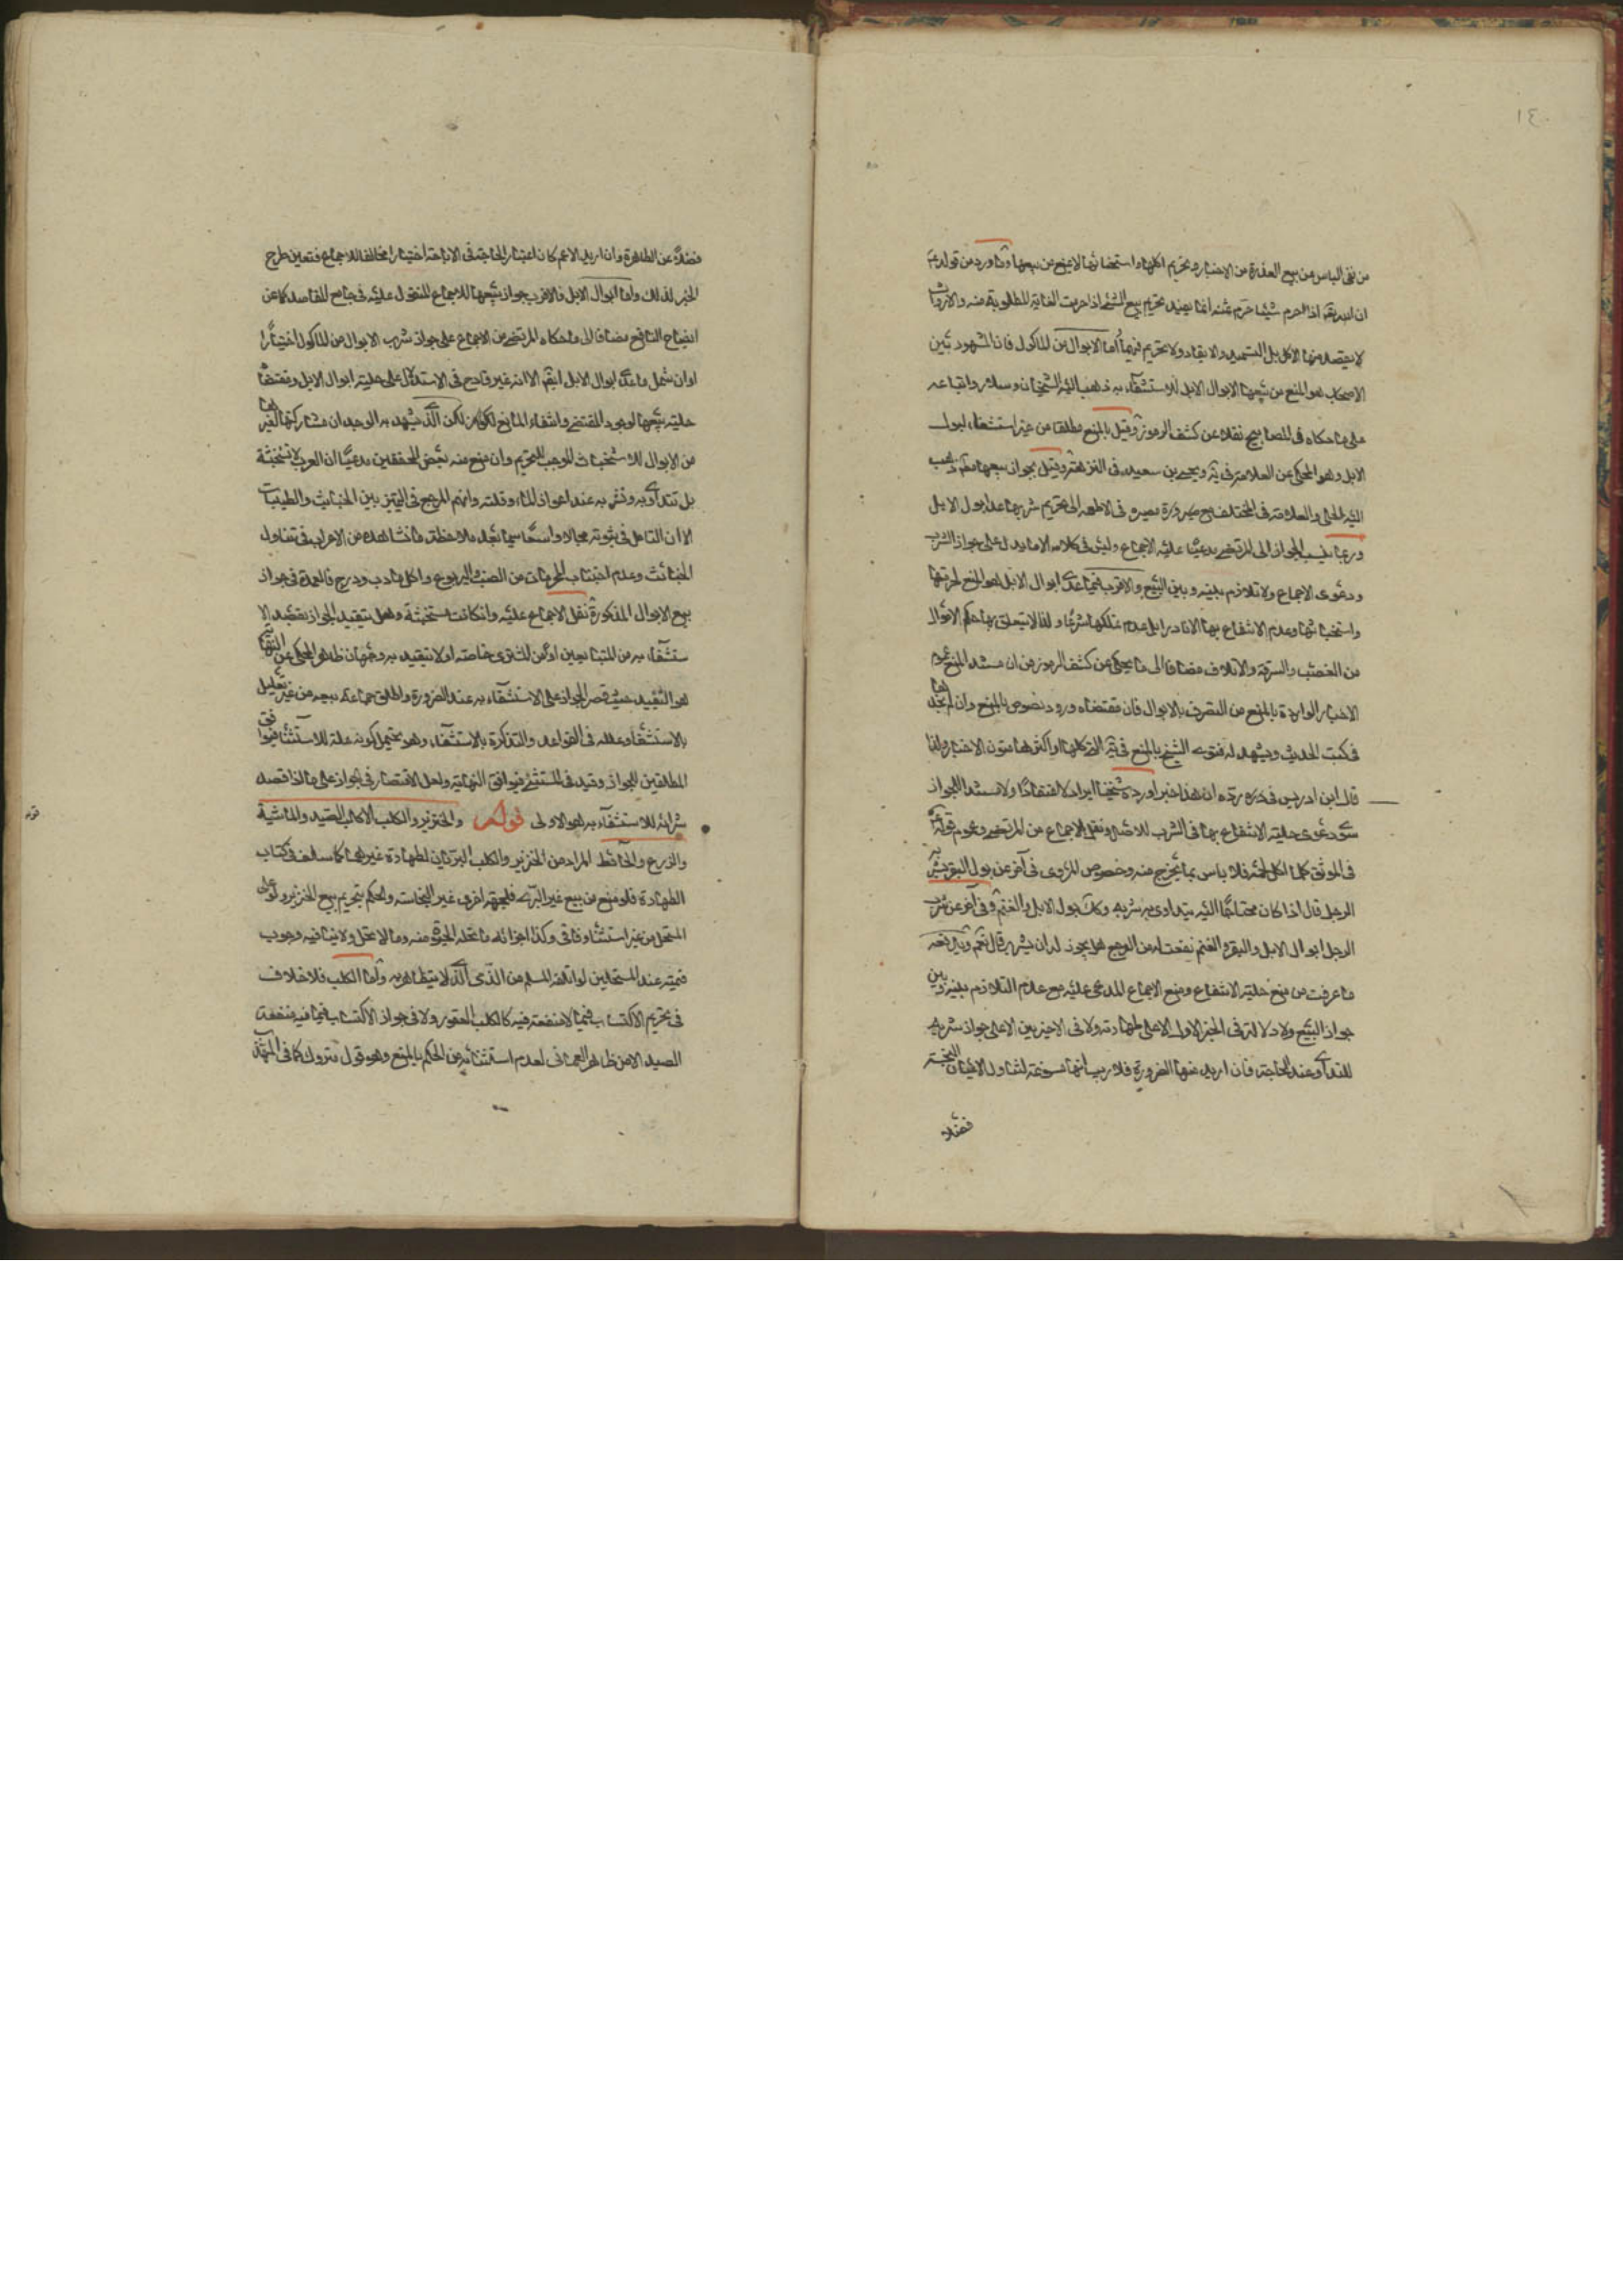 ١٤٠
من نفى الباس من بيع العذرة من الاخبار وتحريم اكلها واستخباثها لا يمنع عن بيعها وما ورد من قوله
ان الله تعالى اذا حرم شيئا حرم ثمنه انما يفيد تحريم بيع الشيء اذا حرمت الغاية المطلوبة منه والارواث
لا يقصد منها الاكل بل التسميد والايقاد ولا تحريم فيها أما الابوال من المأكول فان المشهور بين
الاصحاب هو المنع من بيعها الا بوال الابل للاستشفاء به ذهب اليه الشيخان وسلار واتباعه
على ما حكاه فى المصابيح نقلا عن كشف الرموز وقيل بالمنع مطلقا من غير استثناء لبول
الابل وهو المحكى عن العلامة فى يه ويحيى بن سعيد فى النزهة وقيل بجواز بيعها مطلقا ذهب
اليه الحلى والعلامة فى المختلف مع ضرورة مصيره فى الاطعمة الى تحريم شربها عدا بول الابل
وربما ينسب الجواز الى المرتضى مدعيا عليه الاجماع وليس فى كلامه الا ما يدل على جواز الشرب
ودعوى الاجماع ولا تلازم بينه وبين البيع والاقرب فيما عدا ابوال الابل هو المنع لحرمتها
واستخباثها وعدم الانتفاع بها الا نادرا بل عدم تملكها شرعا ولذا لا يتعلق بها حكم الاموال
من الغصب والسرقة والاتلاف مضافا الى ما يحكى عن كشف الرموز من ان مستند المنع عموم
الاخبار الواردة بالمنع من التصرف بالابوال فان مقتضاه ورود نصوص بالمنع وان لم نجدها
فى كتب الحديث ويشهد له فتوى الشيخ بالمنع فى يه التى كلها او اكثرها متون الاخبار ولذا
قال ابن ادريس فى رده ان هذا خبر اورده شيخنا ايرادا لا اعتقادًا ولا مستند للجواز
سوى دعوى حلية الانتفاع بها فى الشرب للاصل ونقل الاجماع من المرتضى وعموم قوله
فى الموثق كلما اكل لحمه فلا باس بما يخرج منه وخصوص المروى فى آخر عن بول البقر يشربه
الرجل قال اذا كان محتاجًا اليه يتداوى به شربه وكذلك بول الابل والغنم وفى آخر عن شرب
الرجل ابوال الابل والبقر والغنم نفعت له من الوجع هل يجوز له ان يشرب قال نعم
ما عرفت من منع حلية الانتفاع ومنع الاجماع المدعى عليه مع عدم التلازم بينه وبين
جواز البيع ولا دلالة فى الخبر الاول الا على طهارته ولا فى الاخيرين الا على جواز شربه
للتداوى عند الحاجة فان اريد منها الضرورة فلا ريب انها مسوغة لتناول الاعيان النجسة
فضلا
فضلاً عن الطاهرة وان اريد الاعم كان اعتبار الحاجة فى الاباحة اختيارا مخالفا للاجماع فتعين طرح
الخبر لذلك واما ابوال الابل فالاقرب جواز بيعها للاجماع المنقول عليه فى جامع المقاصد كما عن
ايضاح النافع مضافا الى ما حكاه المرتضى من الاجماع على جواز شرب الابوال من المأكول اختيارًا
اوان شمل ما عدا ابوال الابل ايضًا الا انه غير قادح فى الاستدلال على حلية ابوال الابل ومقتضاها
حلية بيعها لوجود المقتضى وانتفاء المانع لكن الذى يشهد به الوجدان مشاركتها لغيرها
من الابوال للاستخباث الموجب للتحريم وان منع منه بعض المحققين مدعيًا ان العرب لا تستخبثه
بل تتداوى به وتشربه عند اعواز الماء وقلته وانهم المرجع فى التميز بين الخبائث والطيبات
الا أن التامل فى ثبوته مجالا واسعًا سيما بعد ملاحظة ما نشاهده من الاعراب فى تناول
الخبائث وعدم اجتناب المحرمات من الضب واليربوع واكل ما دب ودرج فالعمدة فى جواز
بيع الابوال المذكورة نقل الاجماع عليه وان كانت مستخبثة وهل يتقيد الجواز بقصد الا
ستشفاء به من المتبايعين او من المشترى خاصة او لا يتقيد به وجهان ظاهر المحكى عن النهاية
هو التقييد حيث قصر الجواز على الاستشفاء به عند الضرورة واطلق جماعة بيعه من غير تعليل
بالاستشفاء وعلله فى القواعد والتذكرة بالاستشفاء وهو يحتمل كونه علة للاستثناء فيوافق
المطلقين للجواز وقيد فى المستثنى فيوافق النهاية ولعل الاقتصار فى الجواز على ما اذا قصد
شرائه للاستشفاء به هو الاولى قوله والخنزير والكلب الا كلب الصيد والماشية
والزرع والحائط المراد من الخنزير والكلب البريان لطهارة غيرهما كما سلف فى كتاب
الطهارة فلو منع من بيع غير البرى فلجهة اخرى غير النجاسة والحكم بتحريم بيع الخنزير ولو على
المستحل من غير استثناء وفاقى وكذا اجزائه ما تحله الحيوة منه وما لا تحل ولا ينافيه وجوب
قيمته عند المستحلين لو اتلفه المسلم من الذمى الذى لا يتظاهر به وأما الكلب فلا خلاف
فى تحريم الاكتساب فيما لا منفعة فيه كالكلب العقور ولا فى جواز الاكتساب فيما فيه منفعة
الصيد الا من ظاهر العمانى لعدم استثنائه من الحكم بالمنع وهو قول متروك كما فى المهذب